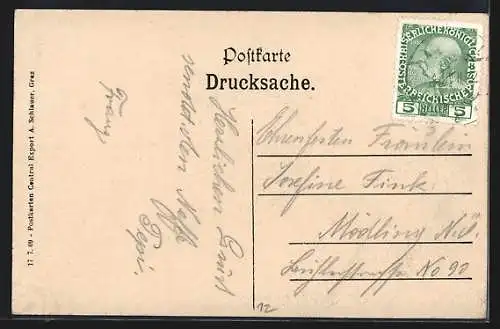 Postkarte
Drucksache.
KAISERLICHE KÖNIGLICHE ÖSTERREICHISCHE POST
5 HELLER 5
17 7. 09 - Postkarten Central Export A. Schlauer, Graz
Herzlichen Gruß
sendet der Neffe
Pepi.
Franz
Ehrenfesten Fräulein
Josefine Fink
Mödling N.Ö.
No 90
12